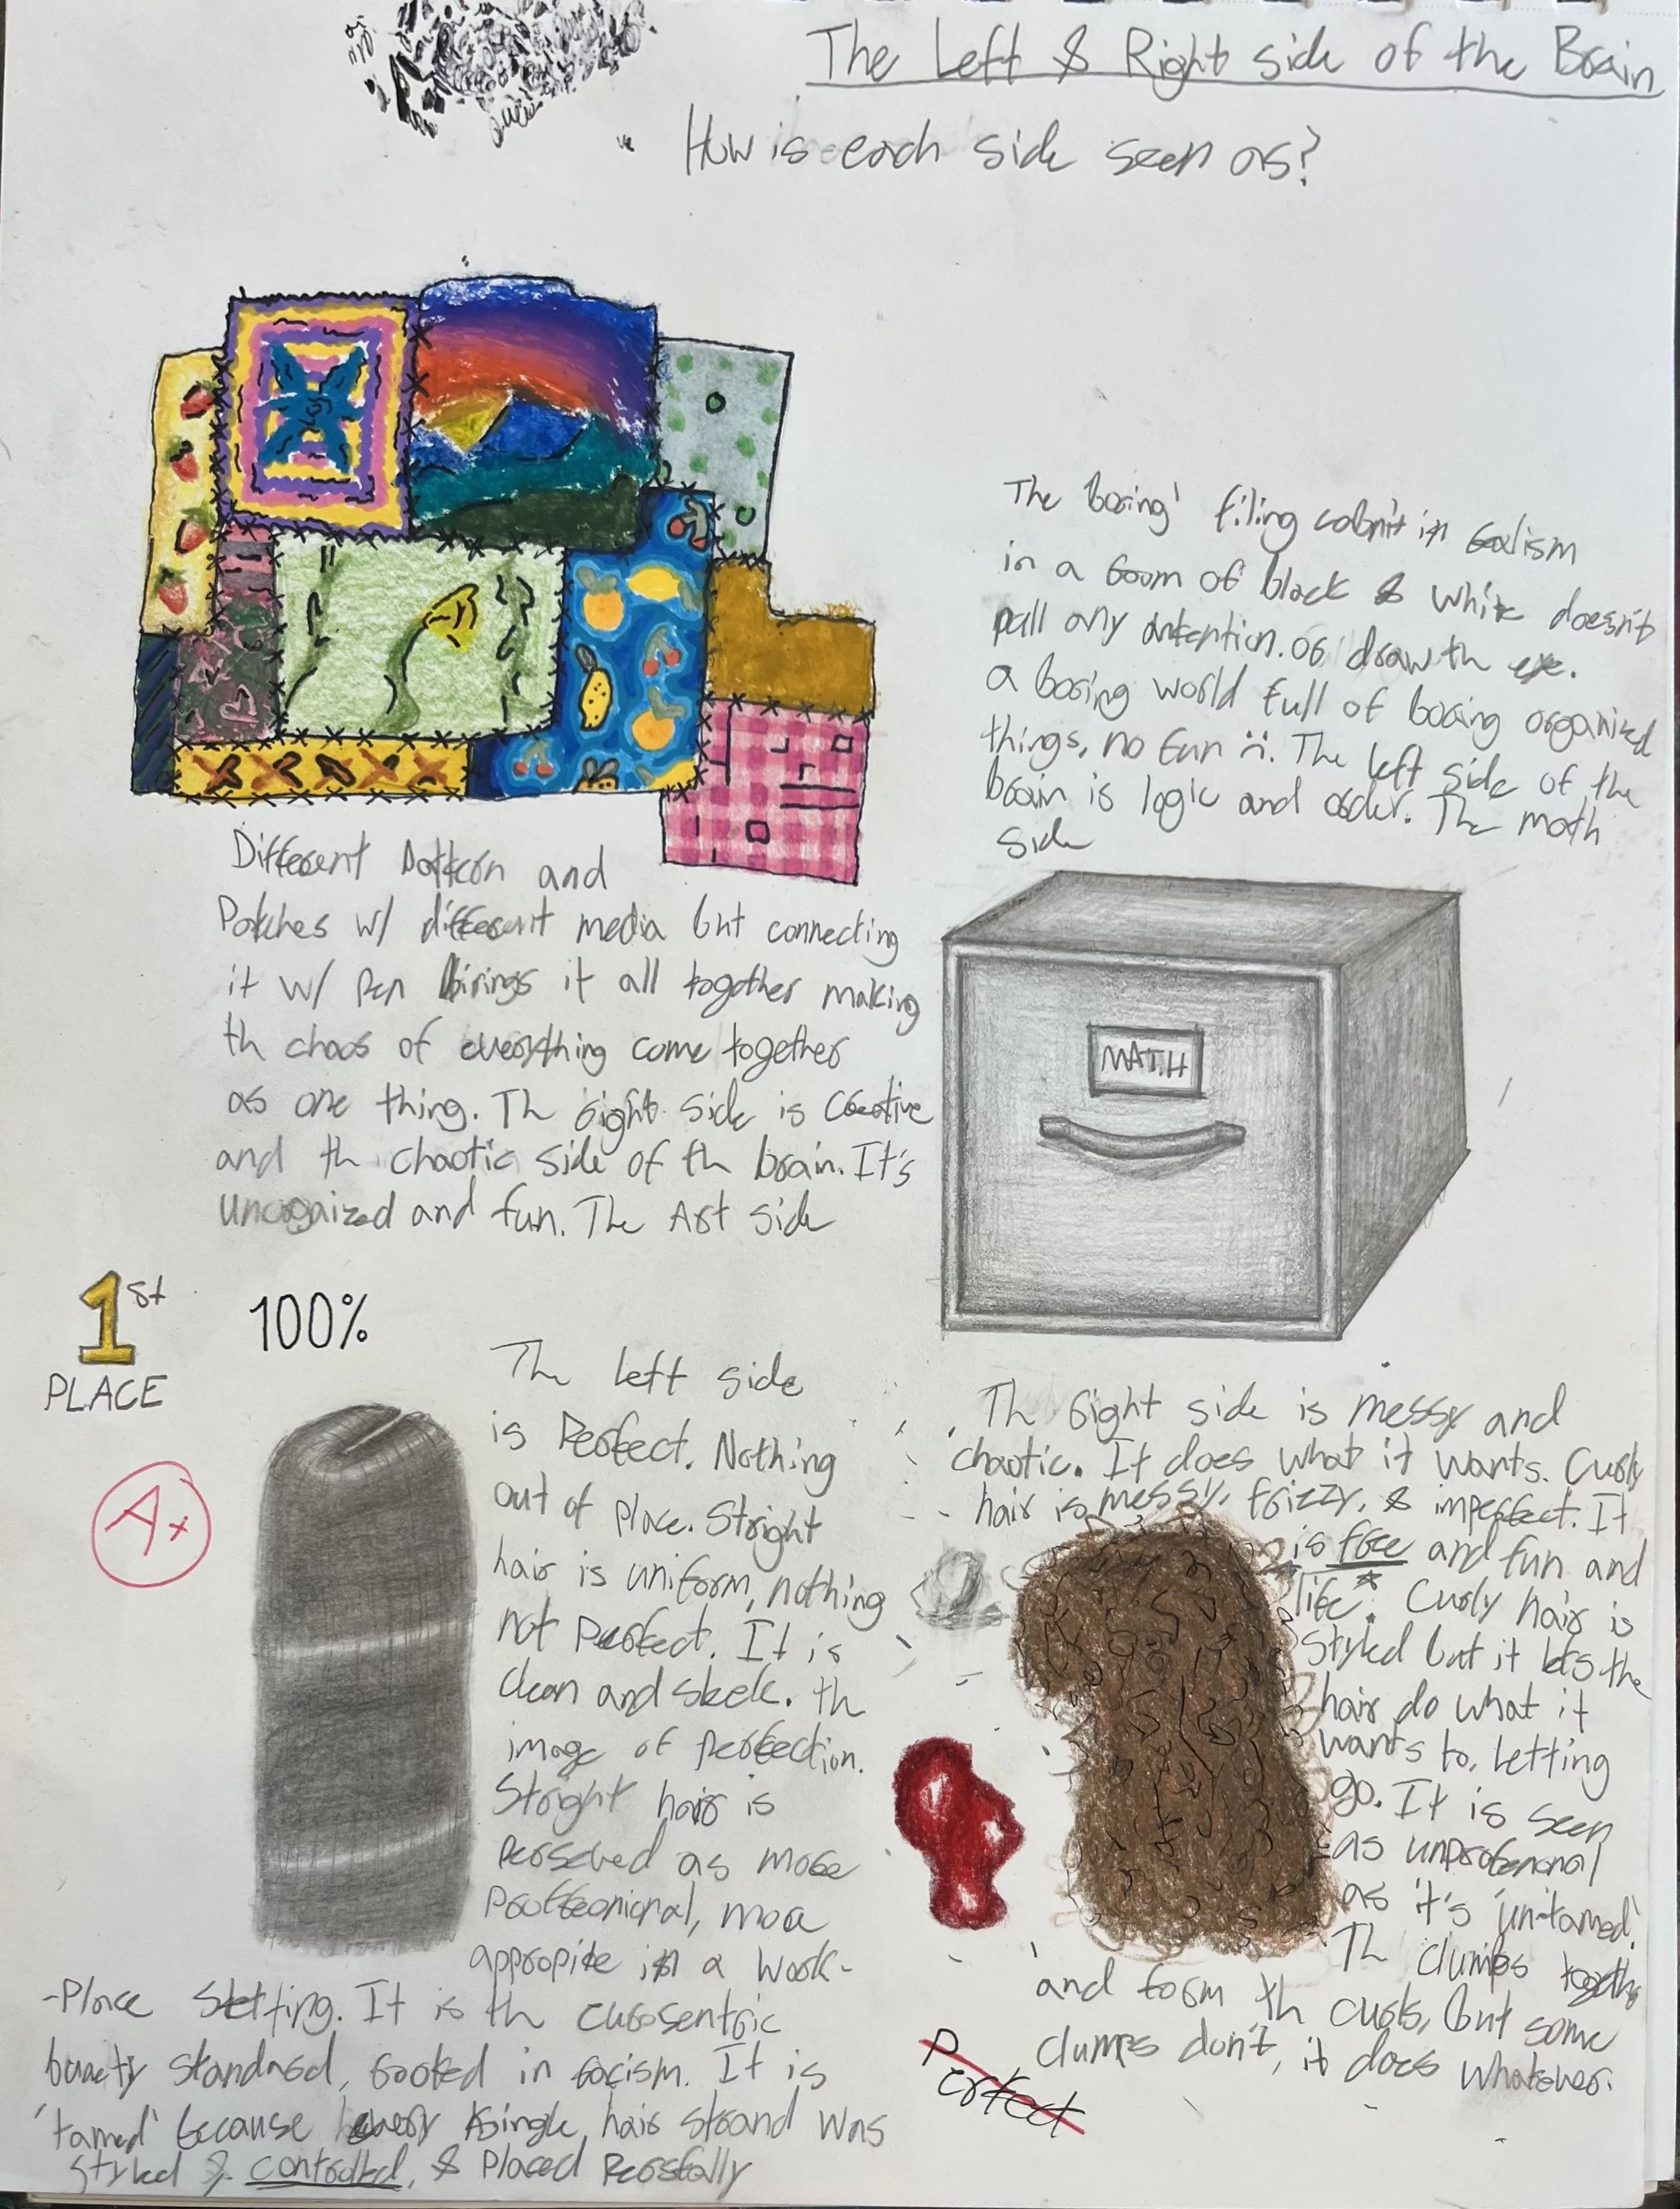 The Left & Right side of the Brain
How is each side seen as?
The 'boring' filing cabnit in realism
in a room of black & white doesn't
pull any antention. or draw th eye.
a boring world full of boring organized
things, no fun :(. The left side of the
brain is logic and order. The math
side
Different Pattern and
Patches w/ different media but connecting
it w/ pen birings it all together making
th chaos of everything come together
as one thing. Th right side is creative
and th chaotic side of th brain. It's
unorgaized and fun. The Art side
MATH
1st
PLACE
100%
A+
The left side
is Perfect. Nothing
out of place. Stright
hair is uniform, nothing
not perfect. It is
clean and sleek. th
image of perfection.
Stright hair is
perseved as more
proffesnional, more
appropite in a work-
-Place Setting. It is th eurosentric
buaety standard, rooted in racism. It is
'tamed' because every single hair strand was
styled & controlled, & placed perfsfally
Th right side is messy and
chaotic. It does what it wants. Curly
hair is messy, frizzy, & imperfect. It
is free and fun and
life. Curly hair is
styled but it lets the
hair do what it
wants to, letting
go. It is seen
as unprofesnonal
as it's 'un-tamed'.
Th clumps togethr
and form th curls, but some
clumps don't, it does whatever.
Perfect